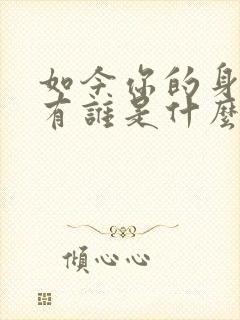 如今你的身
有誰是什麼
傾心心